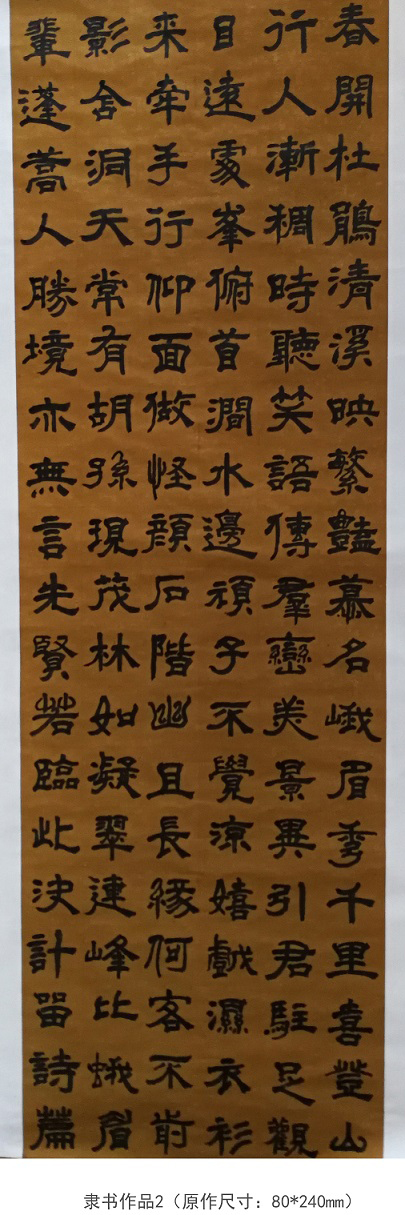 春開杜鵑清溪映繁豔慕名峨眉秀千里喜登山
行人漸稠時聽笑語傳羣巒美景異引君駐足觀
目遠處峯俯首澗水邊頑子不覺涼嬉戲濕衣衫
来牽手行仰面做怪顏石階幽且長緣何客不前
影含洞天常有胡孫現茂林如凝翠連峰比蛾眉
輩蓬蒿人勝境亦無言先賢若臨此決計留詩篇
隶书作品2（原作尺寸：80*240mm）